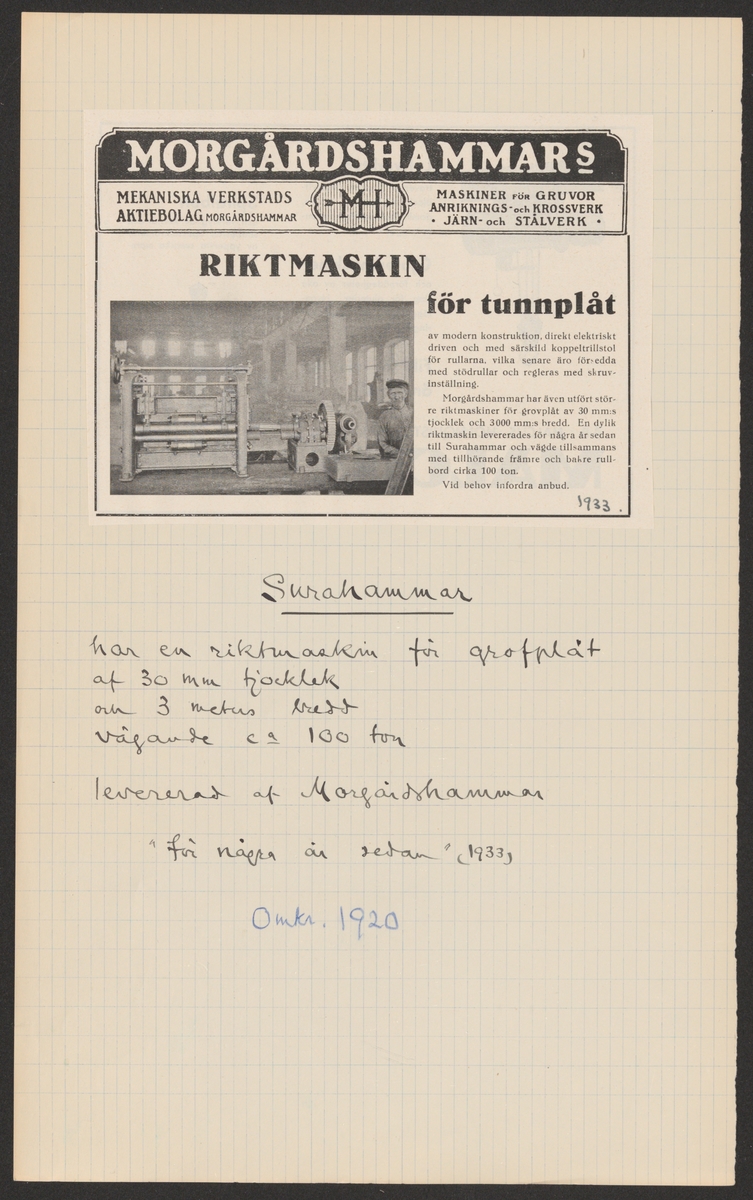 MORGÅRDSHAMMARS
MEKANISKA VERKSTADS
AKTIEBOLAG MORGÅRDSHAMMAR
MH
MASKINER FÖR GRUVOR
ANRIKNINGS- och KROSSVERK
• JÄRN- och STÅLVERK •
RIKTMASKIN
för tunnplåt
av modern konstruktion, direkt elektriskt
driven och med särskild koppeltrillstol
för rullarna, vilka senare äro försedda
med stödrullar och regleras med skruv-
inställning.
Morgårdshammar har även utfört stör-
re riktmaskiner för grovplåt av 30 mm:s
tjocklek och 3000 mm:s bredd. En dylik
riktmaskin levererades för några år sedan
till Surahammar och vägde tillsammans
med tillhörande främre och bakre rull-
bord cirka 100 ton.
Vid behov infordra anbud.
1933.
Surahammar
har en riktmaskin för grofplåt
af 30 mm tjocklek
och 3 meters bredd
vägande ca 100 ton
levererad af Morgårdshammar
"för några år sedan" (1933)
Omkr. 1920